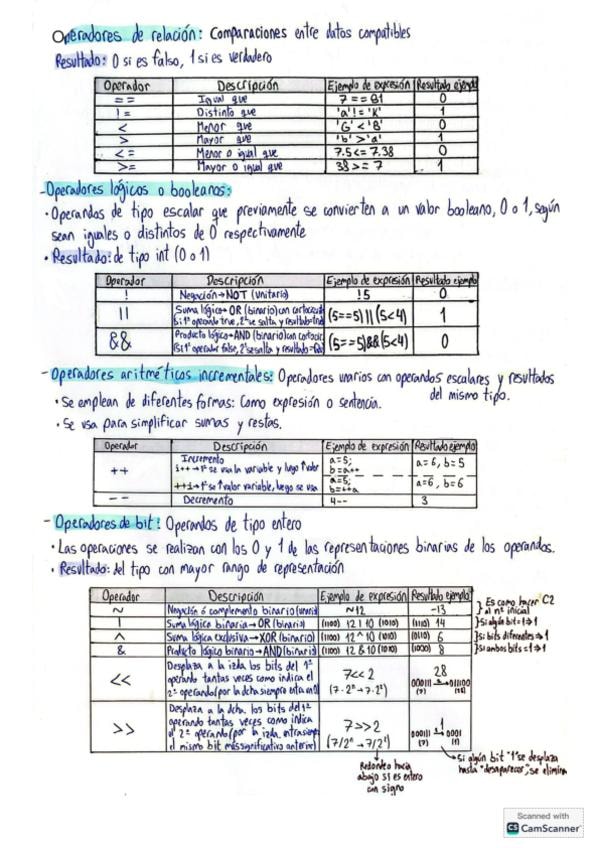 Operadores de relación: Comparaciones entre datos compatibles
Resultado: 0 si es falso, 1 si es verdadero
Operador Descripción Ejemplo de expresión Resultado ejemplo
== Igual que 7 == 81 0
!= Distinto que 'a' != 'K' 1
< Menor que 'G' < 'B' 0
> Mayor que 'b' > 'a' 1
<= Menor o igual que 7.5 <= 7.38 0
>= Mayor o igual que 38 >= 7 1
- Operadores lógicos o booleanos:
• Operandos de tipo escalar que previamente se convierten a un valor booleano, 0 o 1, según
sean iguales o distintos de 0 respectivamente
• Resultado: de tipo int (0 o 1)
Operador Descripción Ejemplo de expresión Resultado ejemplo
! Negación → NOT (unitario) !5 0
|| Suma lógica → OR (binario) con
si 1º operando true, 2º se salta y resultado (5==5)||(5<4) 1
&& Producto lógico → AND (binario) con
Si 1º operador false, 2º se salta y resultado (5==5)&&(5<4) 0
- Operadores aritméticos incrementales: Operadores unarios con operandos escalares y resultados
del mismo tipo.
• Se emplean de diferentes formas: Como expresión o sentencia.
• Se usa para simplificar sumas y restas.
Operador Descripción Ejemplo de expresión Resultado ejemplo
++ Incremento
i++ → 1º se usa la variable y luego ↑valor a=5; b=a++ a=6, b=5
++i → 1º se ↑valor variable, luego se usa a=5; b=++a a=6, b=6
-- Decremento 4-- 3
- Operadores de bit: Operandos de tipo entero
• Las operaciones se realizan con los 0 y 1 de las representaciones binarias de los operandos.
• Resultado: del tipo con mayor rango de representación
Operador Descripción Ejemplo de expresión Resultado ejemplo
~ Negación ó complemento binario (unario) ~12 -13 } Es como hacer C2 al nº inicial
| Suma lógica binaria → OR (binario) (1100) 12 | 10 (1010) (1110) 14 } Si algún bit = 1 ⇒ 1
^ Suma lógica exclusiva → XOR (binario) (1100) 12 ^ 10 (1010) (0110) 6 } si bits diferentes ⇒ 1
& Producto lógico binario → AND (binario) (1100) 12 & 10 (1010) (1000) 8 } Si ambos bits = 1 ⇒ 1
<< Desplaza a la izda los bits del 1º
operando tantas veces como indica el
2º operando (por la dcha siempre entra un 0) 7<<2 (7·2ⁿ → 7·2²) 28
000111 → 011100
(7) (28)
>> Desplaza a la dcha. los bits del 1º
operando tantas veces como indica
el 2º operando (por la izda. entra siempre
el mismo bit más significativo anterior) 7>>2 (7/2ⁿ → 7/2²) 1
000111 → 0001
(7) (1)
Redondeo hacia
abajo si es entero
con signo
Si algún bit "1" se desplaza
hasta "desaparecer", se elimina
Scanned with
CS CamScanner